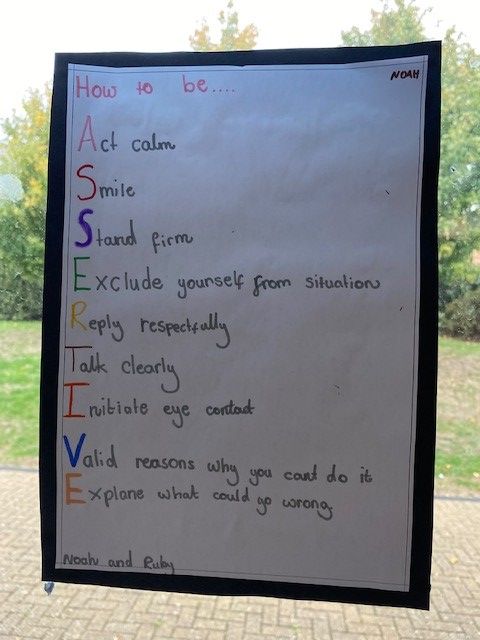 NOAH
How to be....
Act calm
Smile
Stand firm
Exclude yourself from situation
Reply respectfully
Talk clearly
Initiate eye contact
Valid reasons why you cant do it
Explane what could go wrong.
Noah and Ruby